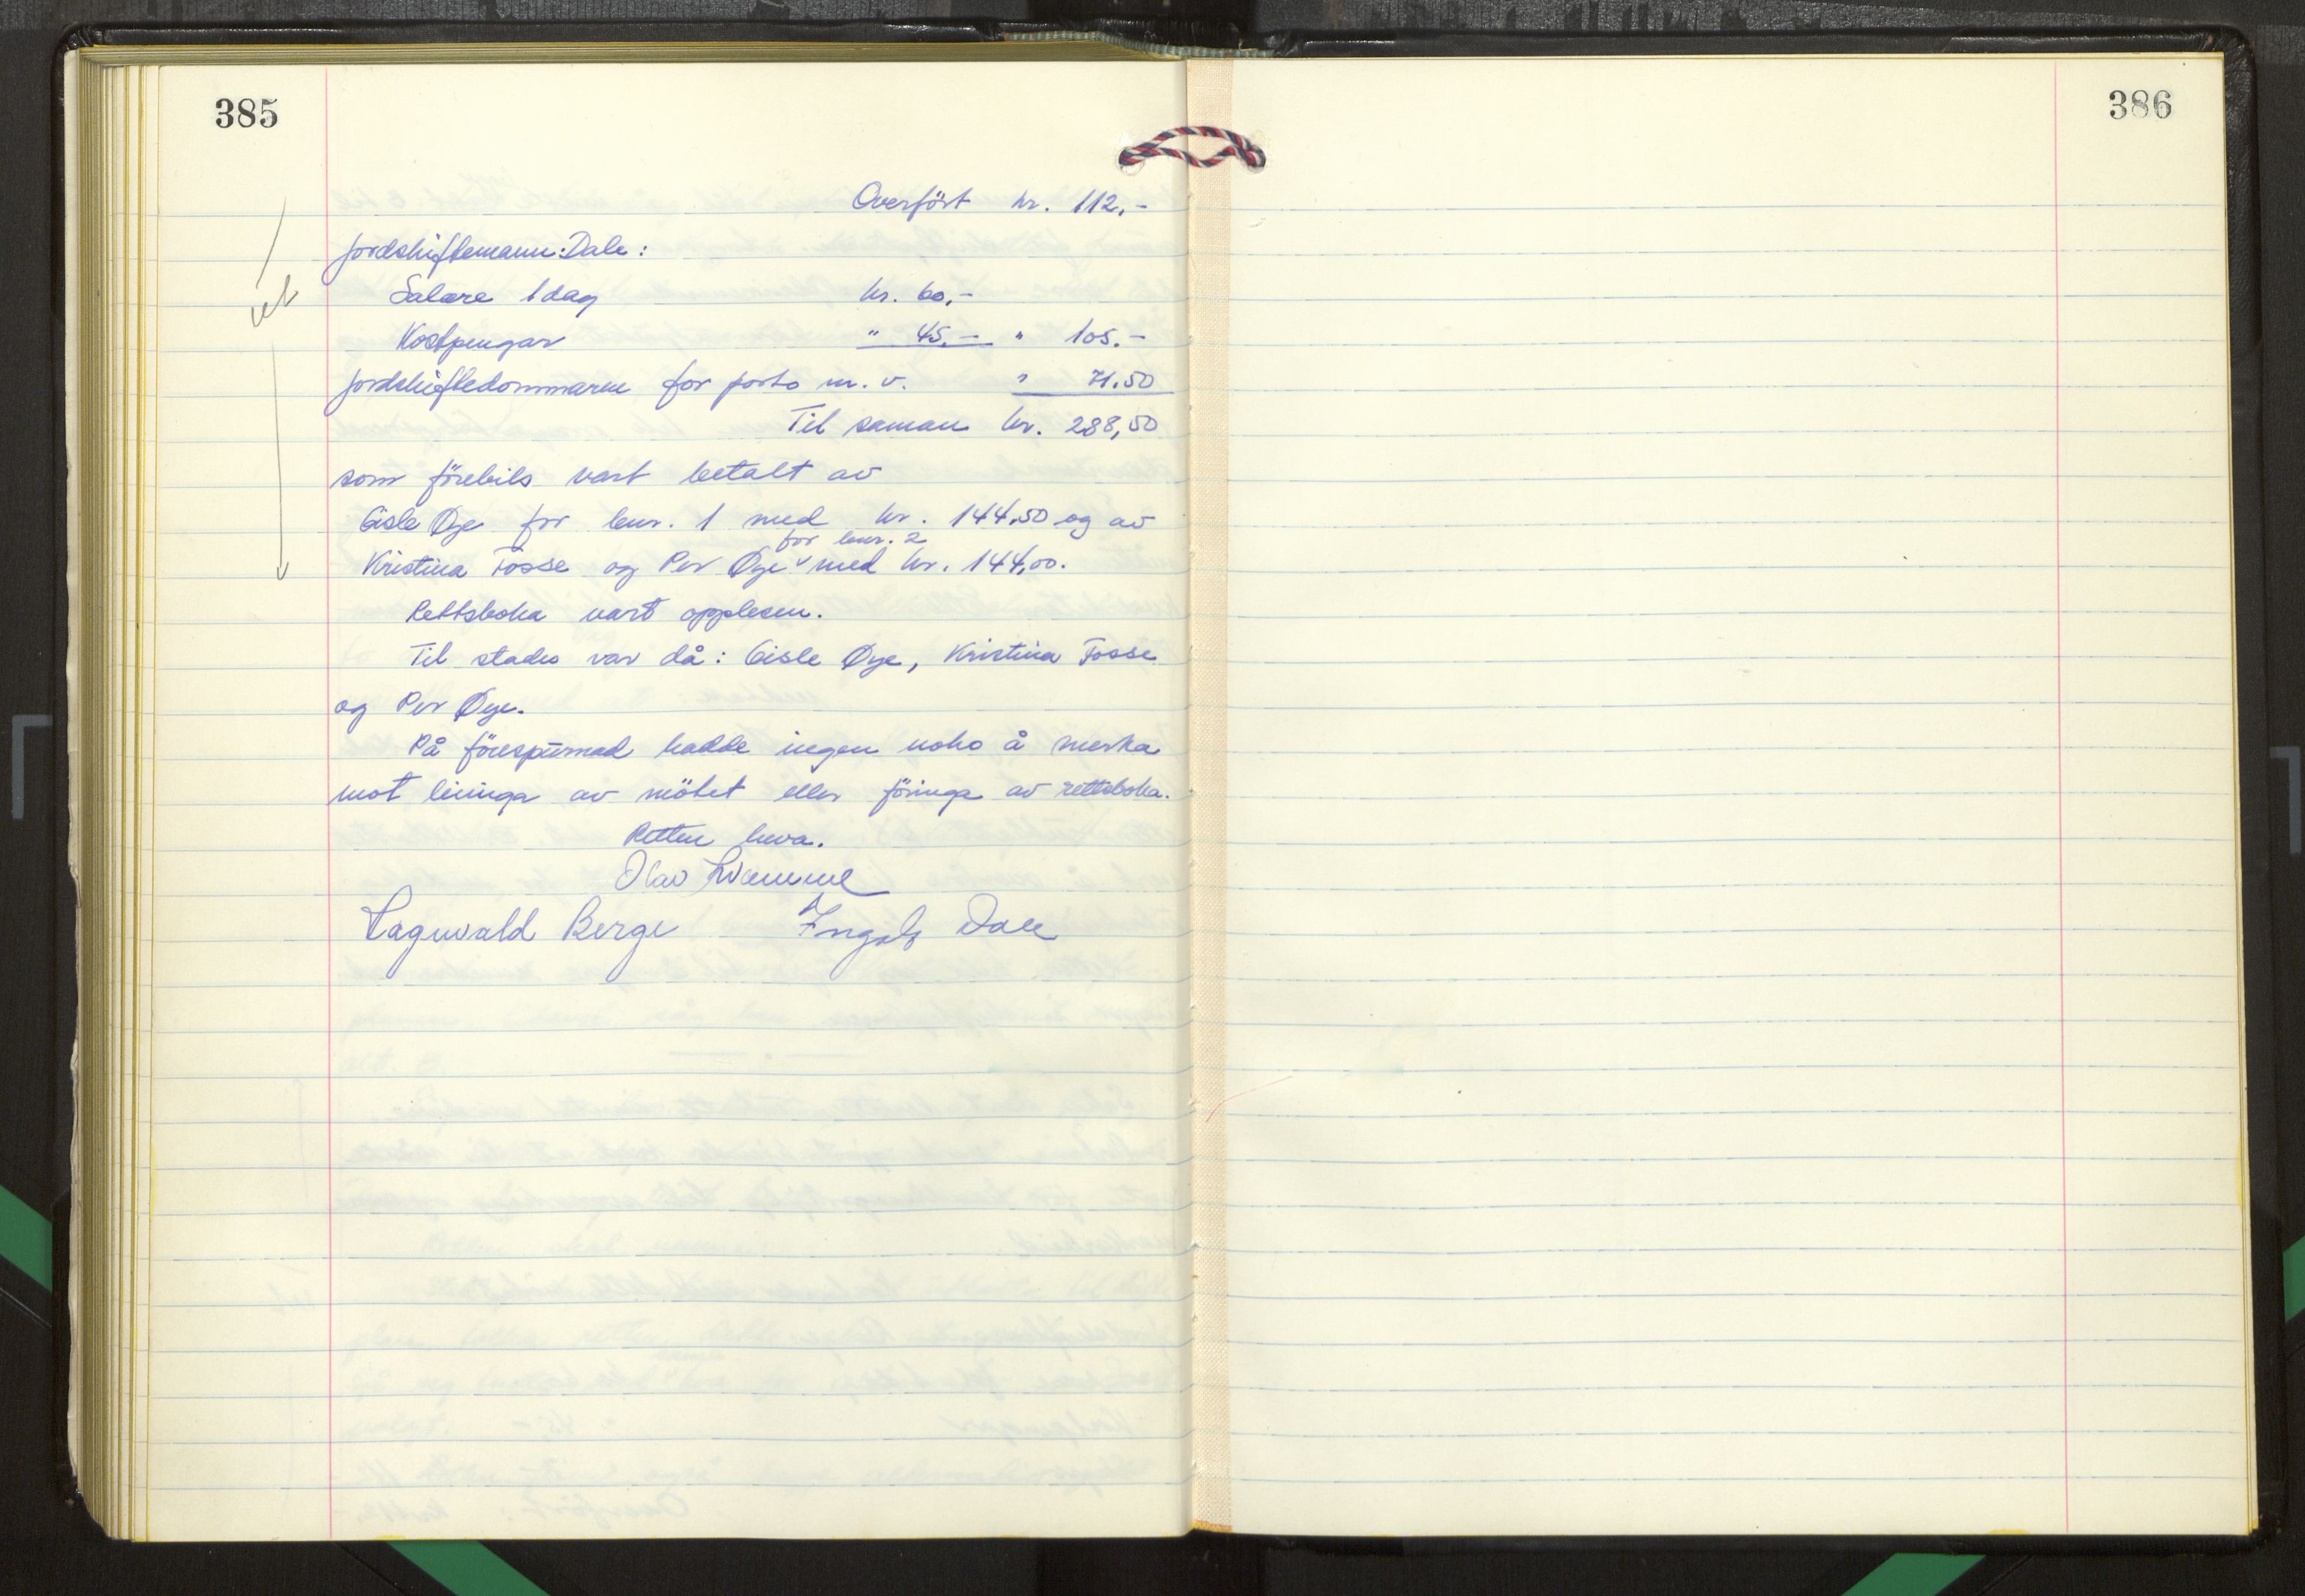 385
Overfört kr. 112.-
Jordskiftemann: Dale:
Salære 1 dag kr. 60,-
Kostpengar " 45.- " 105.-
Jordskiftedommaren for porto m. v. " 71.50
Til saman kr. 288,50
som förebils vart betalt av
Gisle Øye for bnr. 1 med kr. 144,50 og av
for bnr. 2
Kristina Fosse og Per Øye v med kr. 144,00.
Rettsboka vart opplesen.
Til stades var då: Gisle Øye, Kristina Fosse
og Per Øye.
På förespurnad hadde ingen noko å merka
mot leiinga av mötet eller föringa av rettsboka.
Retten heva.
Olav
Lagnvald Berge Ingolv Dale
386